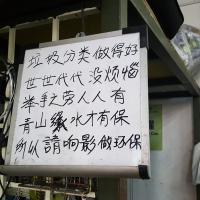 垃圾分类做得好
世世代代没烦惱
举手之劳人人有
青山緣水才有保
所以請响影做环保